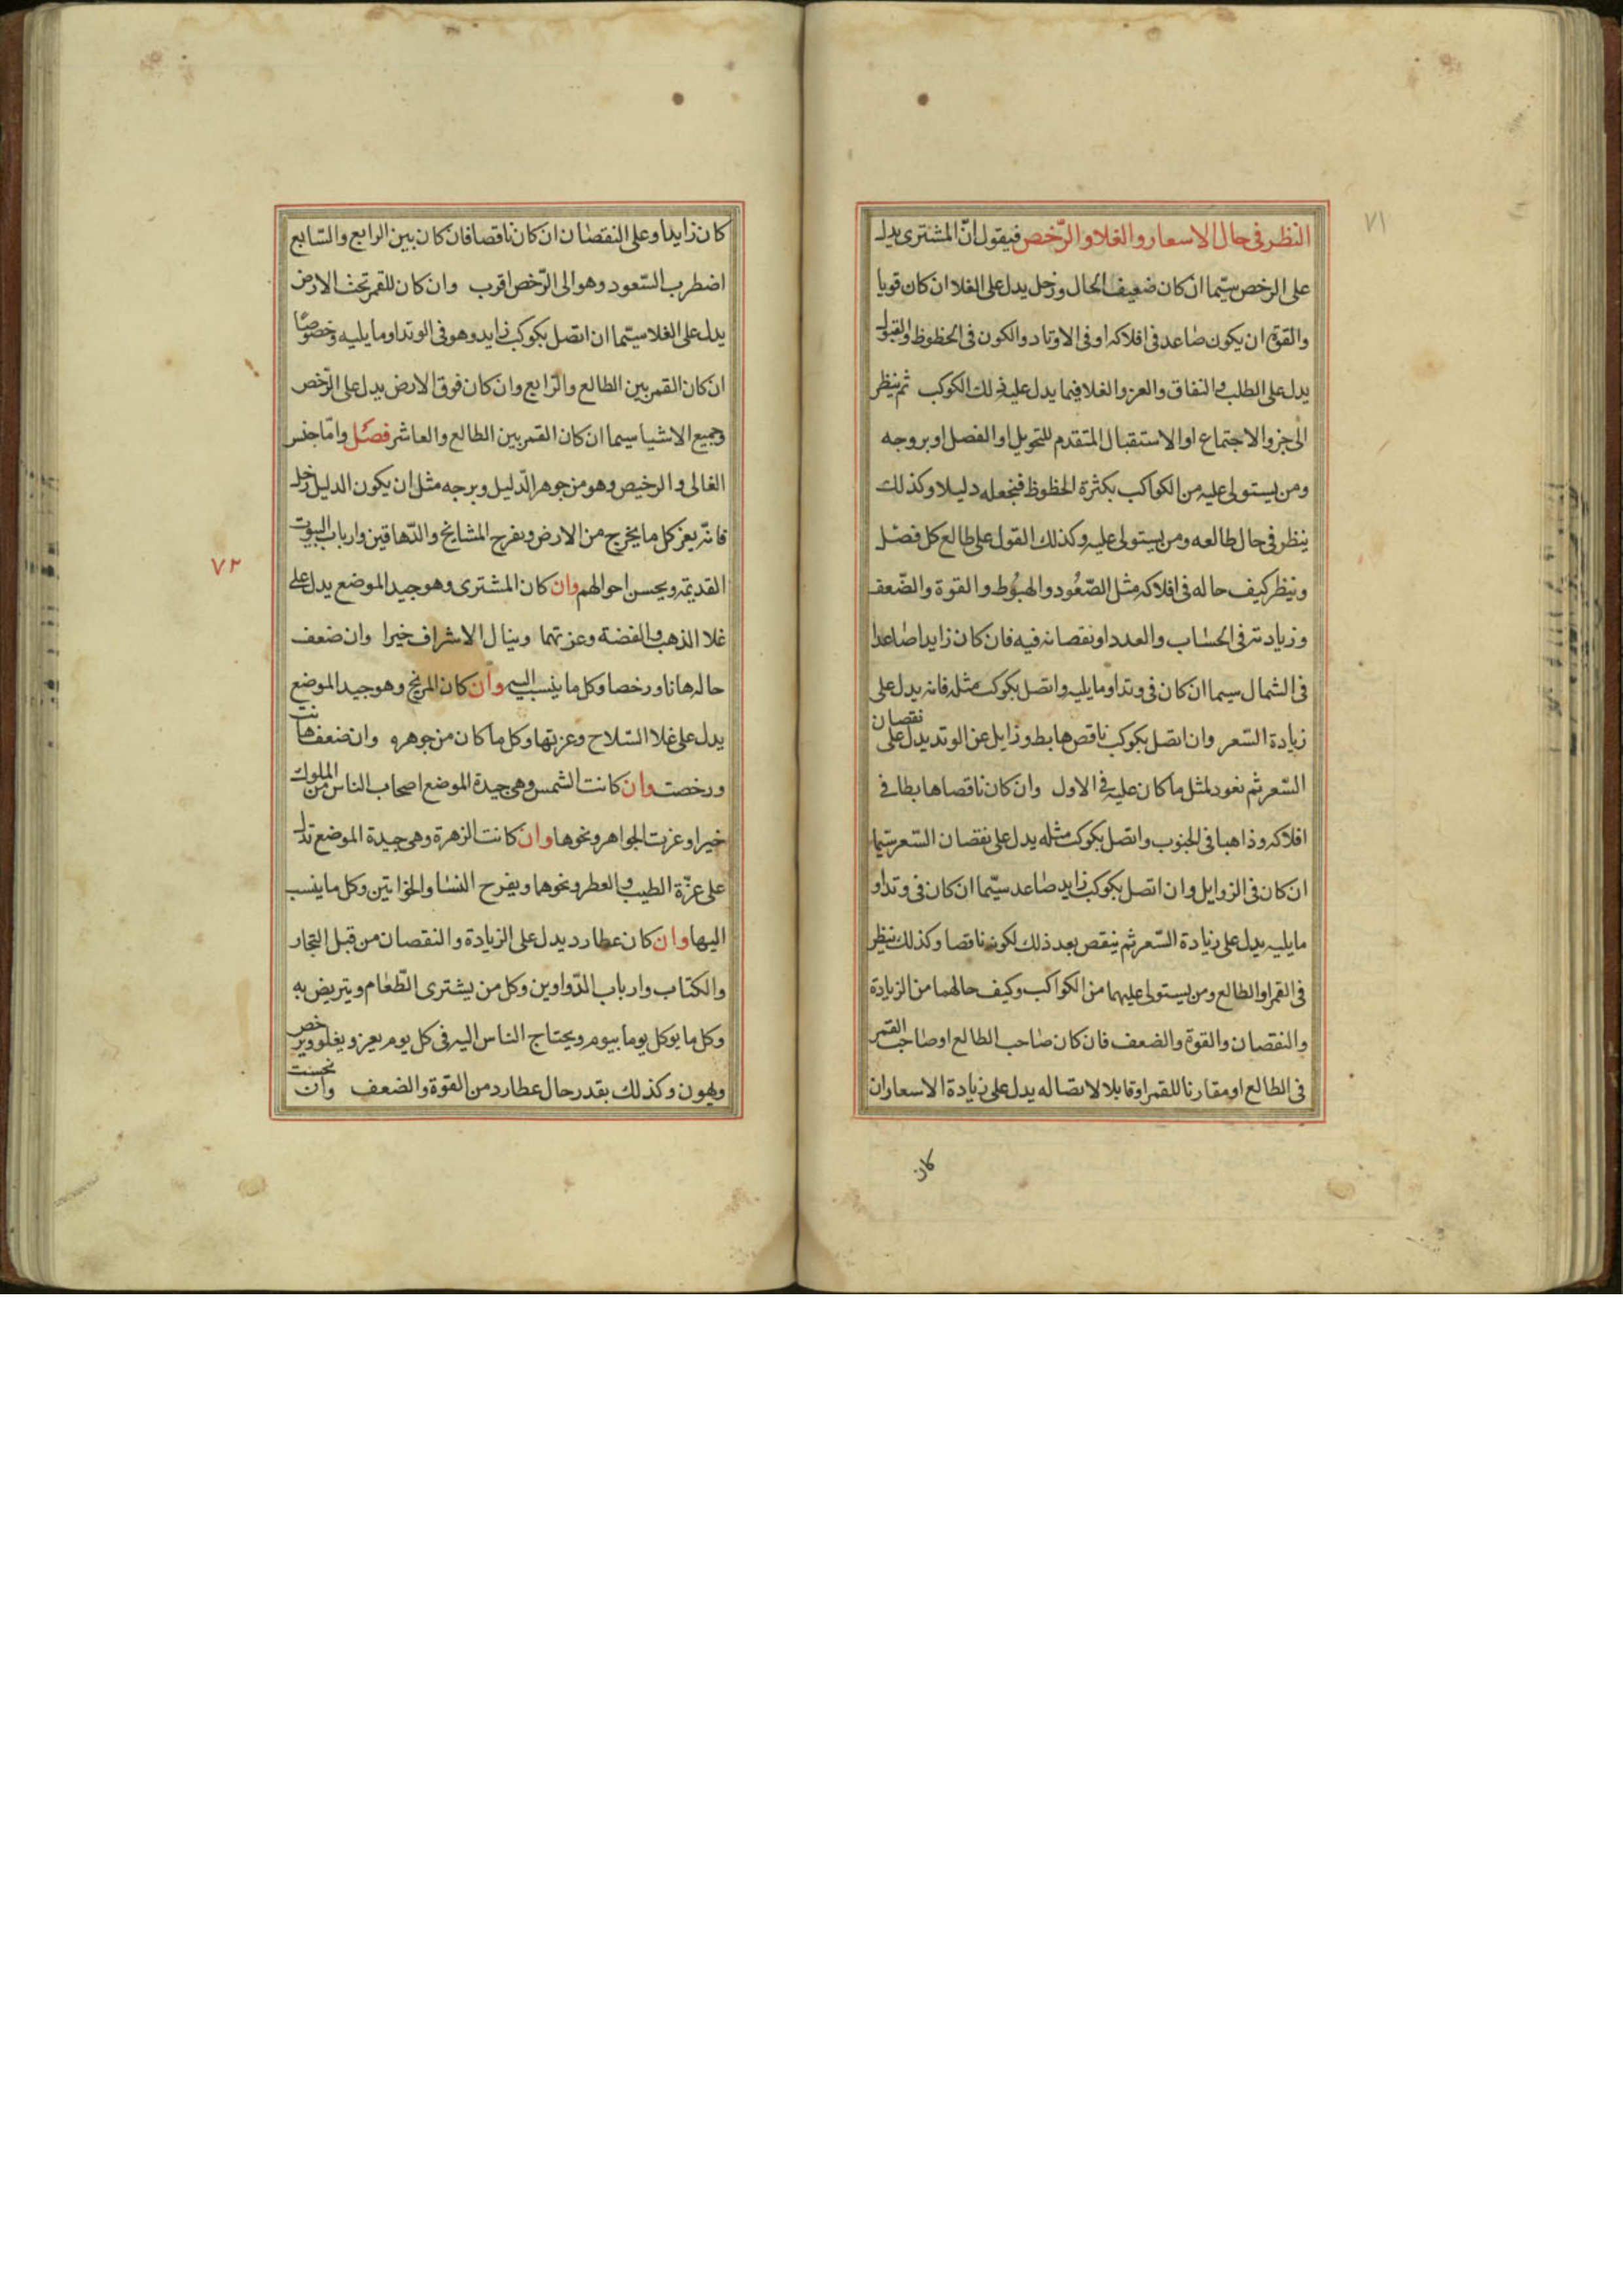 ٧١
النظر فى حال الاسعار والغلا والرّخص فيقول انّ المشترى يدل
على الرخص سيّما ان كان ضعيف الحال وزحل يدل على الغلا ان كان قويا
والقوة ان يكون صاعد فى افلاكه او فى الاوتاد والكون فى الحظوظ والقبول
يدل على الطلب والنفاق والعز والغلا فيما يدل عليه ذلك الكوكب ثم ينظر
الى جزو الاجتماع او الاستقبال المتقدم للتحويل او الفصل او بروجه
ومن يستولى عليه من الكواكب بكثرة الحظوظ فنجعله دليلا وكذلك
ينظر فى حال طالعه ومن يستولى عليه وكذلك القول على طالع كل فصل
وينظر كيف حاله فى افلاكه مثل الصّعُود والهبُوط والقوة والضّعف
وزيادته فى الحساب والعدد او نقصانه فيه فان كان زايدا صاعدا
فى الشمال سيما ان كان فى وتد او مايليه واتصل بكوكب مثله فانه يدل على
زيادة السّعر وان اتصل بكوكب ناقص هابط وزايل عن الوتد يدل على نقصان
السّعر ثم نعود لمثل ما كان عليه فى الاول وان كان ناقصا هابطا فى
افلاكه وذاهبا فى الجنوب واتصل بكوكب مثله يدل على نقصان السّعر سيّما
ان كان فى الزوايل وان اتصل بكوكب زايد صاعد سيّما ان كان فى وتد او
مايليه يدل على زيادة السّعر ثم ينقص بعد ذلك لكونه ناقصا وكذلك ينظر
فى القمر او الطالع ومن يستولى عليهما من الكواكب وكيف حالهما من الزيادة
والنقصان والقوة والضعف فان كان صاحب الطالع او صاحب القمر
فى الطالع او مقارنا للقمر او قابلا لاتصاله يدل على زيادة الاسعار ان
كان
كان زايدا وعلى النقصان ان كان ناقصا فان كان بين الرابع والسّابع
اضطرب السّعود وهو الى الرّخص اقرب وان كان للقمر تحت الارض
يدل على الغلا سيّما ان اتصل بكوكب زايد وهو فى الوتد او مايليه وخصوصًا
ان كان القمر بين الطالع والرّابع وان كان فوق الارض يدل على الرّخص
وجميع الاشيا سيما ان كان القمر بين الطالع والعاشر فصل وامّا جنس
الغالى والرخيص وهو من جوهر الدّليل وبرجه مثل ان يكون الدليل زحل
فانّه يعز كل مايخرج من الارض ويفرح المشايخ والدّهاقين وارباب البيوت
القديمة ويحسن احوالهم وان كان المشترى وهو جيد الموضع يدل على
غلا الذهب والفضة وعزتهما وينال الاشراف خيرا وان ضعف
حاله هانا ورخصا وكل ما ينسب اليه وان كان المريخ وهو جيد الموضع
يدل على غلا السّلاح وعزتها وكل ما كان من جوهره وان ضعف هانت
ورخصت وان كانت الشمس وهى جيدة الموضع اصحاب الناس من الملوك
خيرا وعزت الجواهر ونحوها وان كانت الزهرة وهى جيدة الموضع تدل
على عزّة الطيب والعطر ونحوهما ويفرح النسا والخواتين وكل ماينسب
اليها وان كان عطارد يدل على الزيادة والنقصان من قبل التجار
والكتاب وارباب الدّواوين وكل من يشترى الطّعام ويتربض به
وكل مايوكل يوما بيوم ويحتاج الناس اليه فى كل يوم يعز ويغلو ويرخص
ويهون وكذلك بقدر حال عطارد من القوّة والضعف وان نحست
٧٢